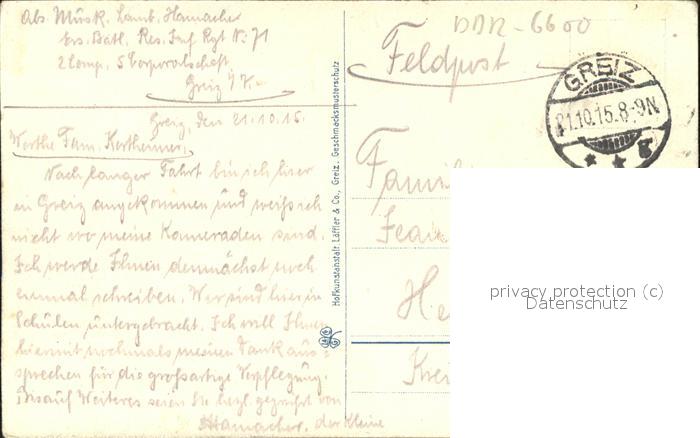 Abs. Müsk. Lamb. Hamacher
Ers. Batl. Res. Inf Rgt No 71
2 Comp. 5 Corporalschaft
Greiz
DDR-6600
Feldpost
GREIZ
21.10.15.8-9N
Greiz, den 21.10.15.
Werthe Fam. Kertheimer,
Nach langer Fahrt bin ich hier
in Greiz angekommen und weiß ich
nicht wo meine Kameraden sind.
Ich werde Ihnen demnächst noch
einmal schreiben. Wir sind hier in
Schulen untergebracht. Ich will Ihnen
hiermit nochmals meinen Dank aus-
sprechen für die großartige Verpflegung.
Bis auf Weiteres seien Sie herzl. gegrüßt von
Hamacher, der Kleine
Hofkunstanstalt Löffler & Co., Greiz. Geschmacksmusterschutz
Famili
Jean
He
Krei
privacy protection (c)
Datenschutz